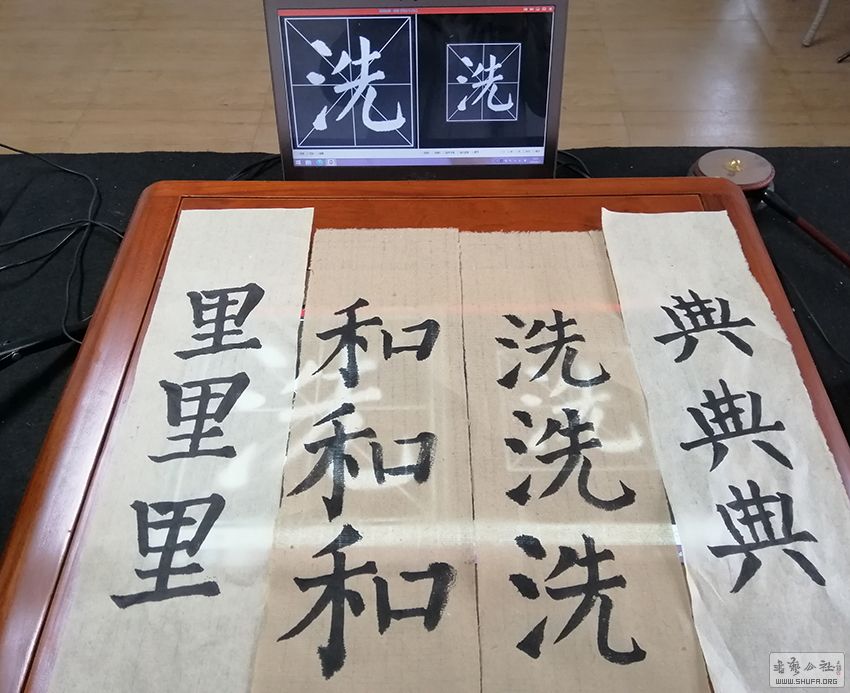 洗 洗
里 和 洗 典
里 和 洗 典
里 和 洗 典
书艺公社
WWW.SHUFA.ORG